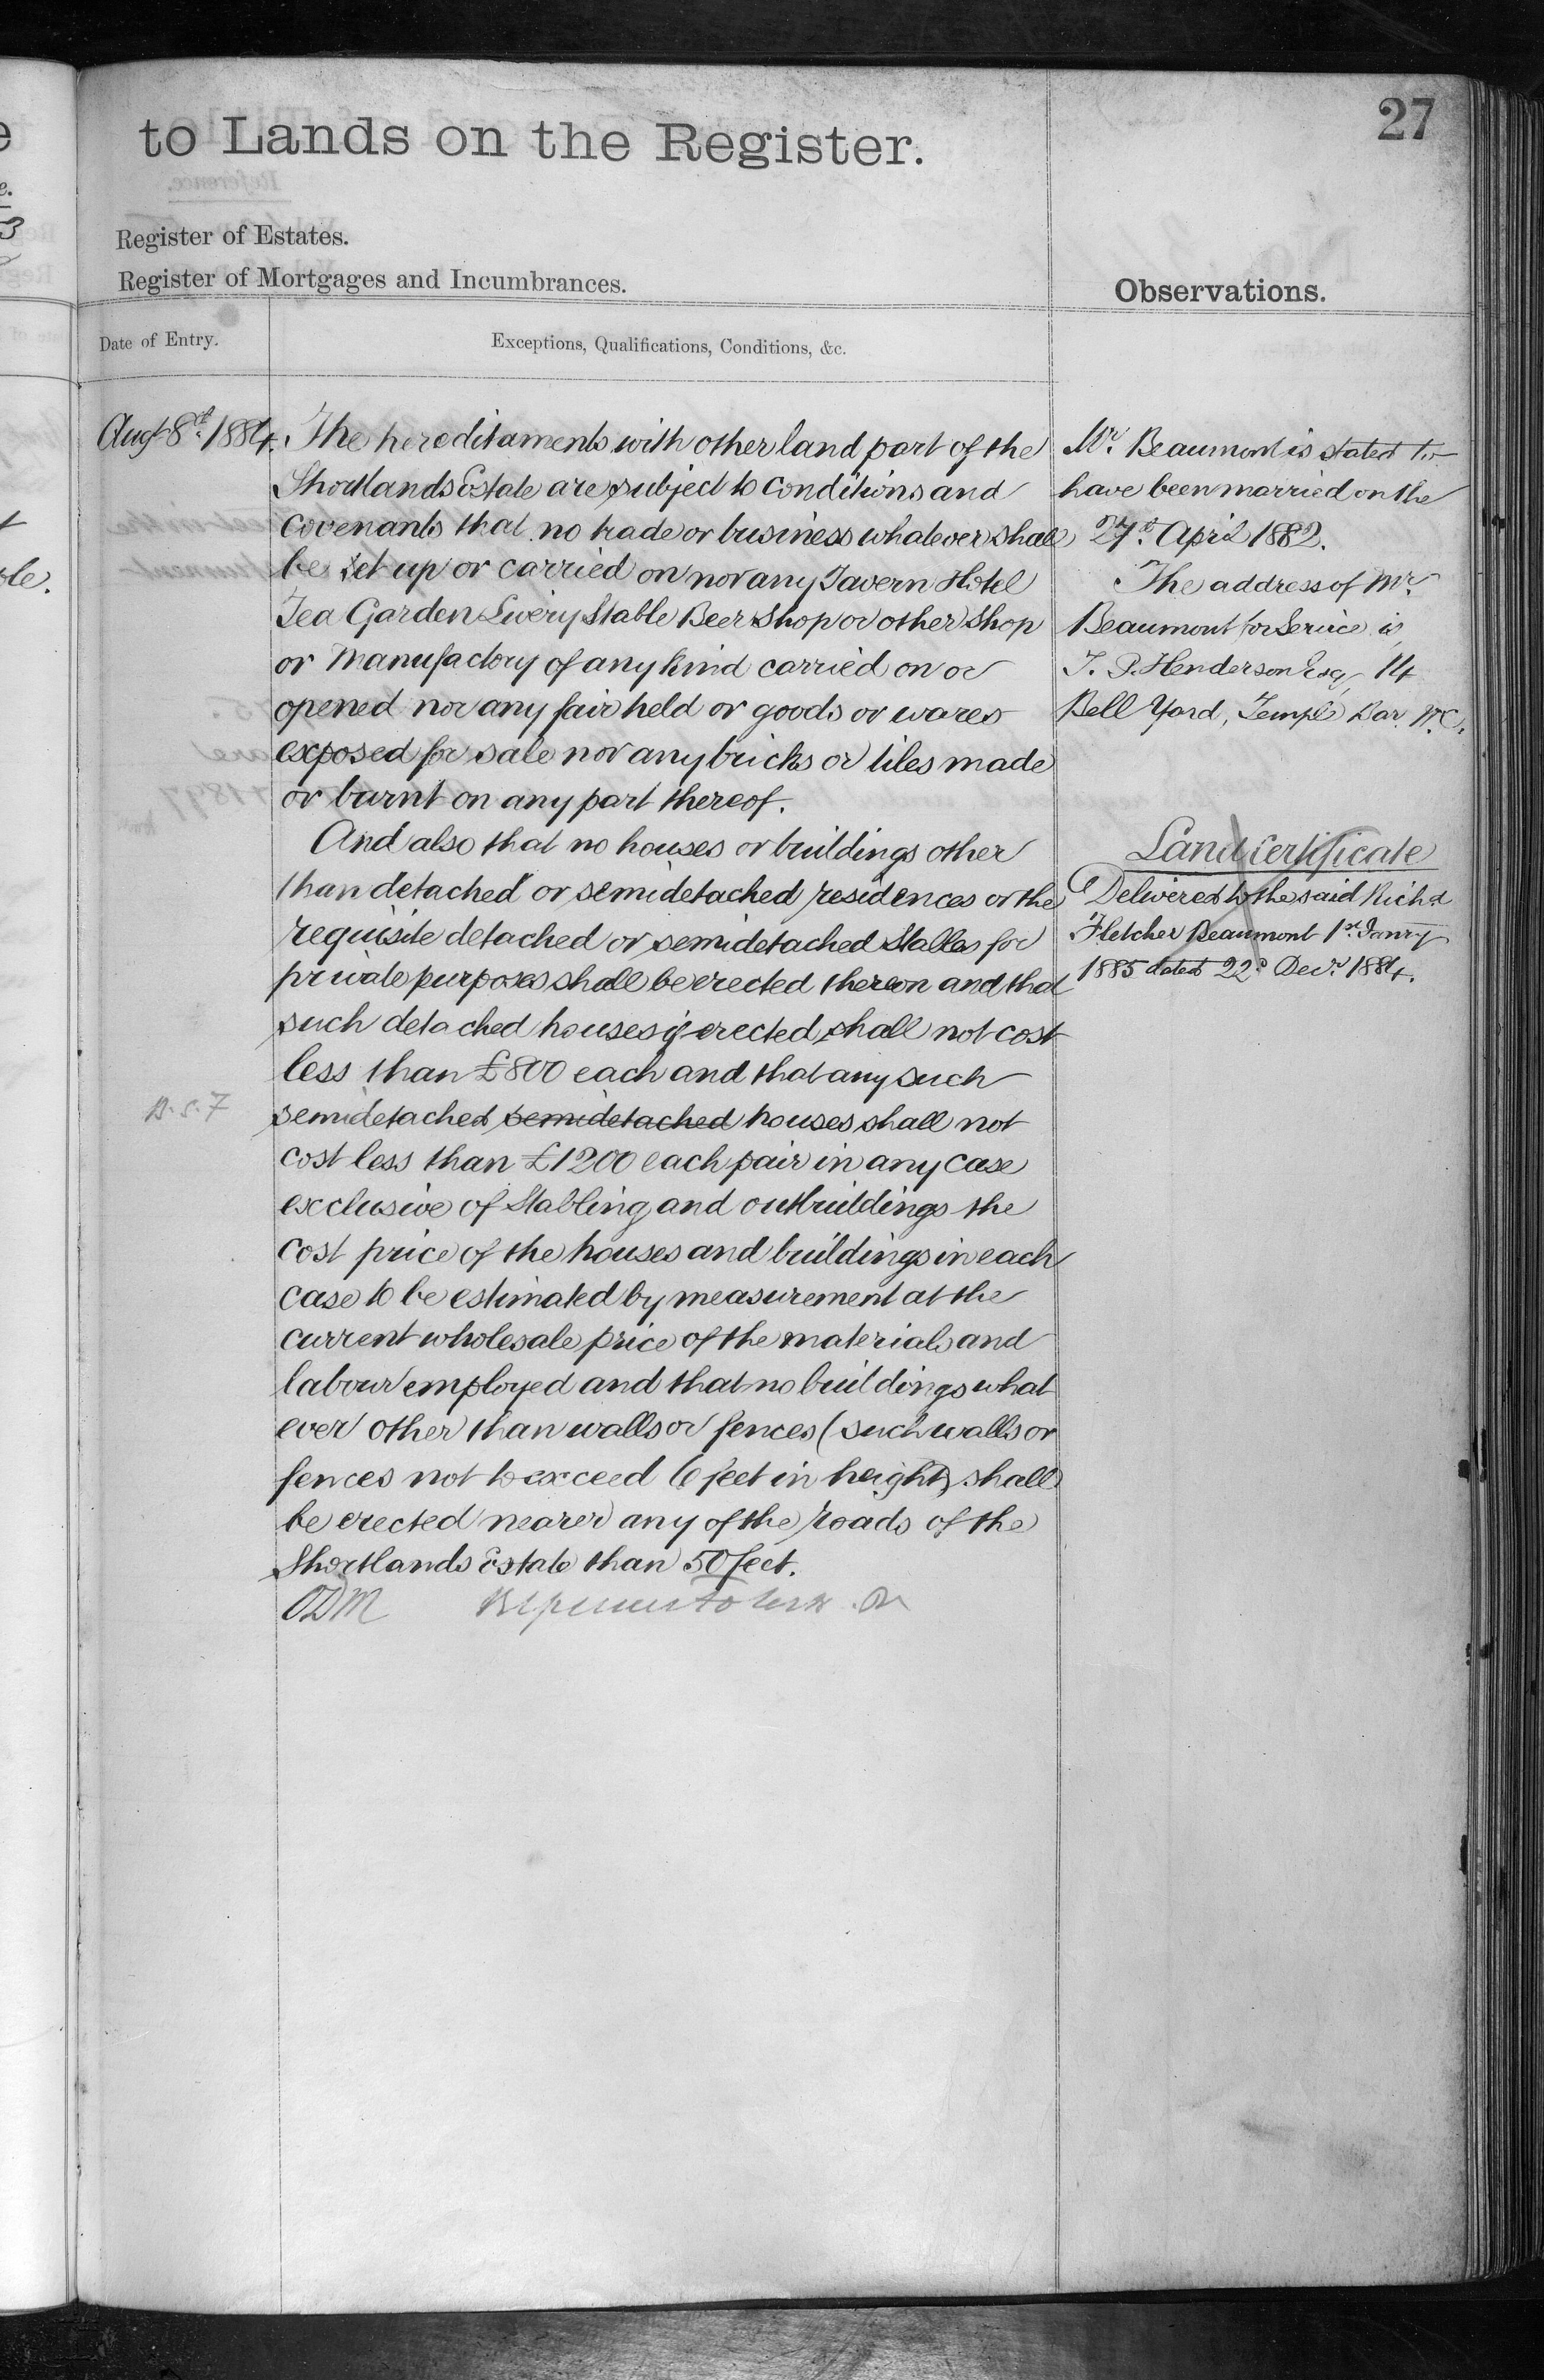 27
to Lands on the Register.
Register of Estates.
Register of Mortgages and Incumbrances.
Observations.
Date of Entry.
Exceptions, Qualifications, Conditions, &c.
Augt 8th 1884.
The hereditaments with other land part of the
Shortlands Estate are subject to conditions and
covenants that no trade or business whatever shall
be set up or carried on nor any Tavern Hotel
Tea Garden Livery Stable Beer shop or other shop
or manufactory of any kind carried on or
opened nor any fair held or goods or wares
exposed for sale nor any bricks or tiles made
or burnt on any part thereof.
And also that no houses or buildings other
than detached or semidetached residences or the
requisite detached or semidetached Stables for
private purposes shall be erected thereon and that
such detached houses if erected shall not cost
less than £800 each and that any such
B.S.7
semidetached semidetached houses shall not
cost less than £1200 each pair in any case
exclusive of Stabling and outbuildings the
cost price of the houses and buildings in each
case to be estimated by measurement at the
current wholesale price of the materials and
labour employed and that no buildings what
ever other than walls or fences (such walls or
fences not to exceed 6 feet in height) shall
be erected nearer any of the roads of the
Shortlands Estate than 50 feet.
ODM
Mr. Beaumont is stated to
have been married on the
27th April 1882.
The address of Mr.
Beaumont for Service is
T. P. Henderson Esq, 14
Bell Yard, Temple Bar. W.C.
Land Certificate
Delivered to the said Richd
Fletcher Beaumont 1st Janry
1885 dated 22d Decr 1884.